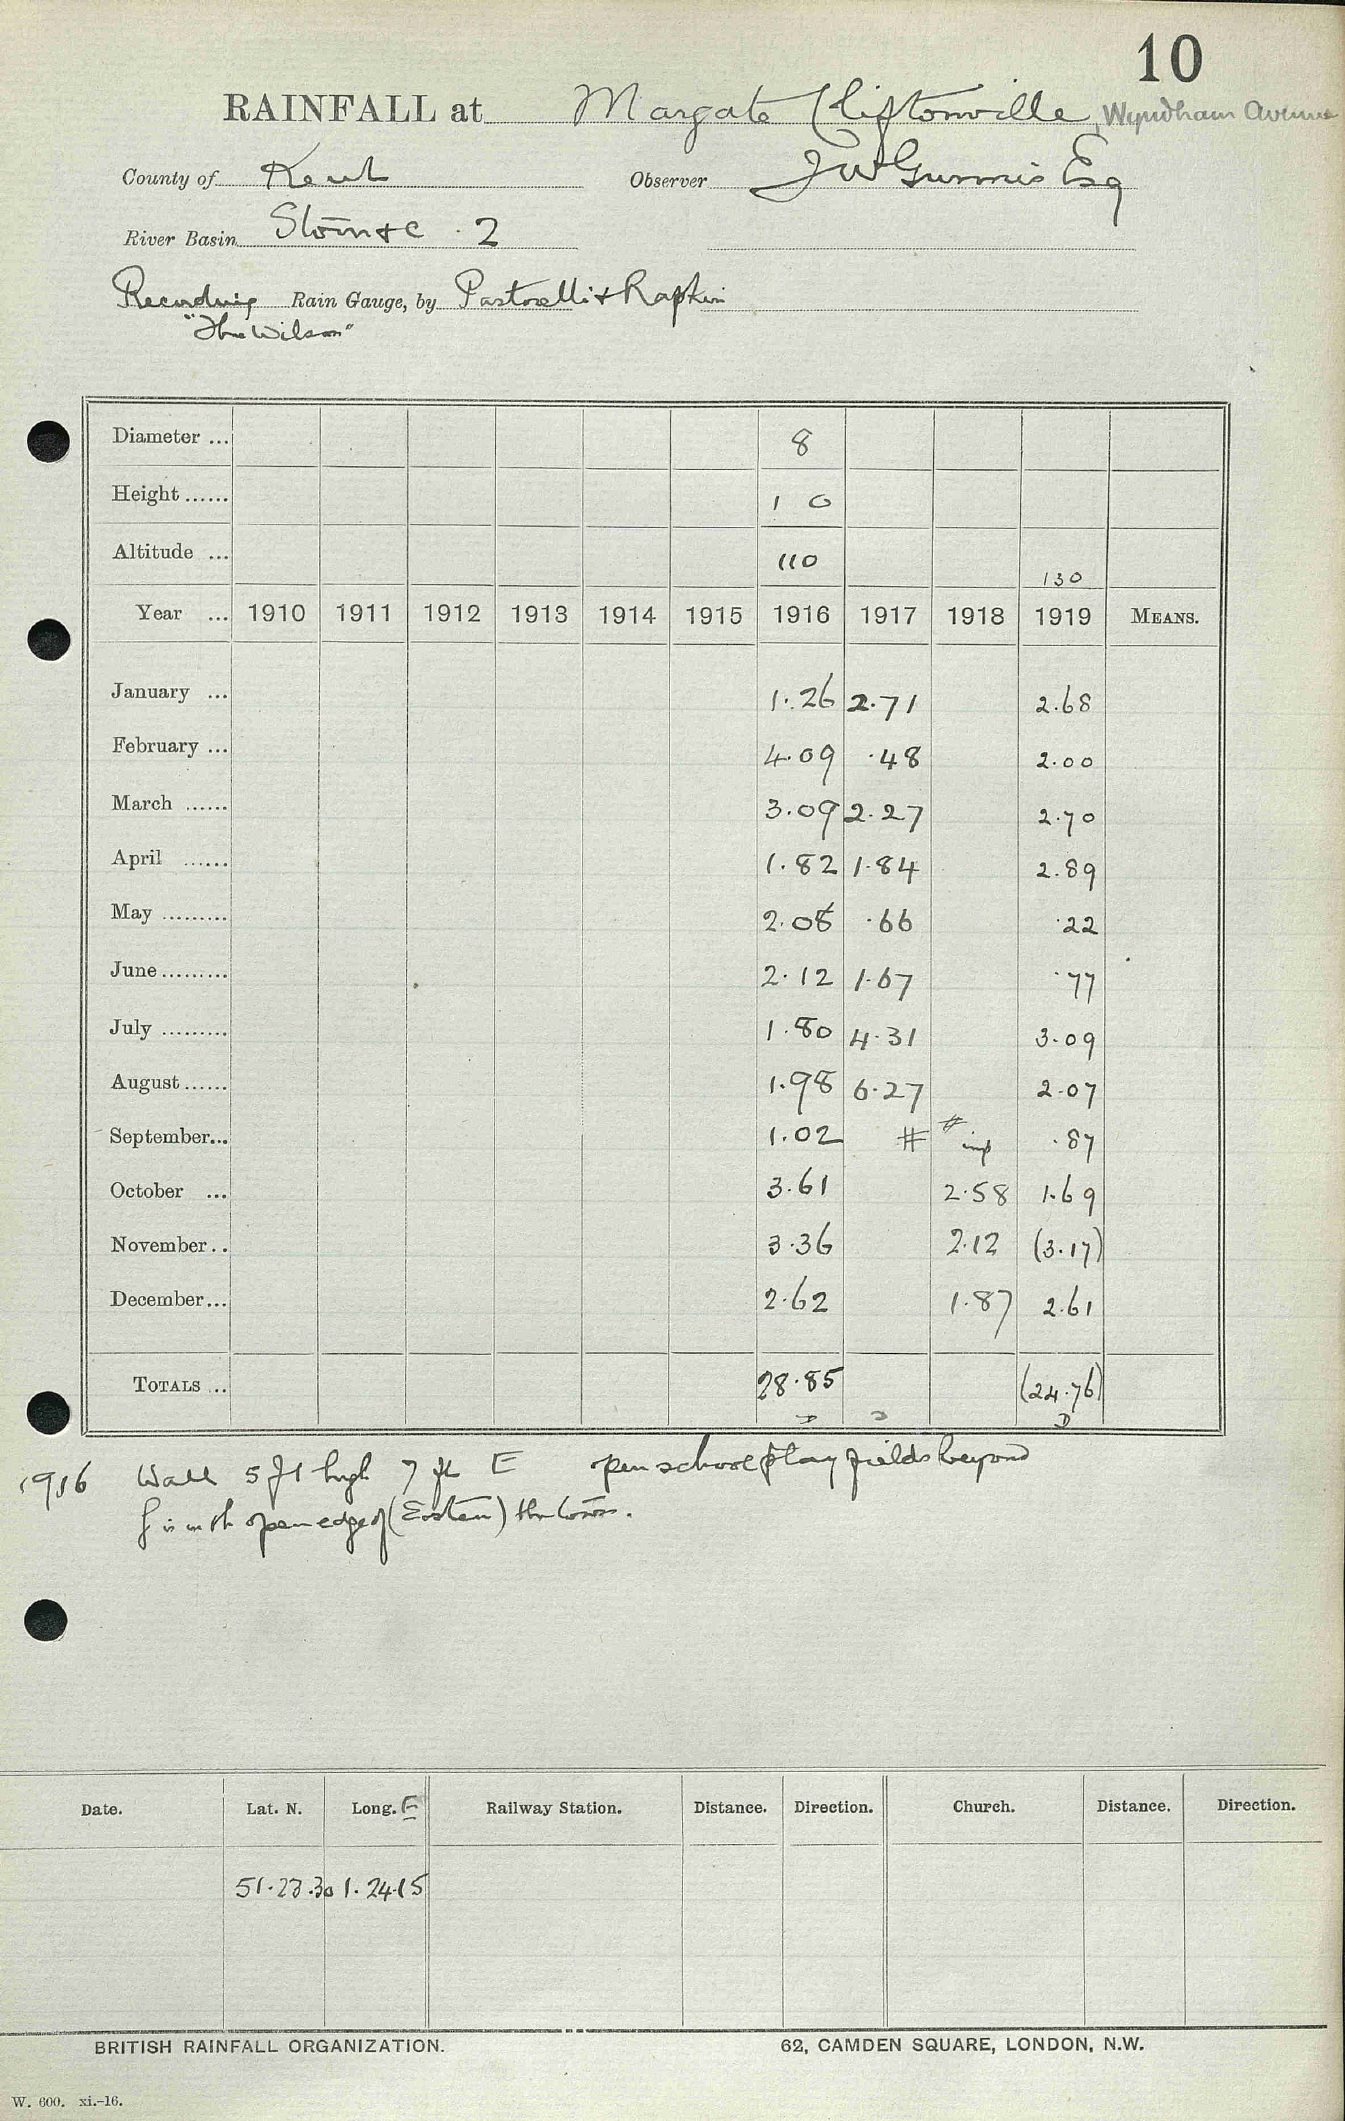 10
RAINFALL at Margate Cliftonville, Wyndham Avenue
County of Kent Observer J W Gunnis Esq
River Basin 2
Recording Rain Gauge, by Pastorelli & Rapkin
"The Wilson"
Diameter ... 8
Height ...... 1 0
Altitude ... 110 130
Year ... 1910 1911 1912 1913 1914 1915 1916 1917 1918 1919 MEANS.
January ... 1.26 2.71 2.68
February ... 4.09 .48 2.00
March ...... 3.09 2.27 2.70
April ...... 1.82 1.84 2.89
May ......... 2.08 .66 .22
June ......... 2.12 1.67 .77
July ......... 1.80 4.31 3.09
August ...... 1.98 6.27 2.07
September... 1.02 # # imp .87
October ... 3.61 2.58 1.69
November .. 3.36 2.12 (3.17)
December... 2.62 1.87 2.61
TOTALS ... 28.85 (24.76)
D D D
1916 Wall 5 ft high 7 ft E open school play fields beyond
open edge of (Eastern) the town.
Date. Lat. N. Long. E Railway Station. Distance. Direction. Church. Distance. Direction.
51.23.30 1.24.15
BRITISH RAINFALL ORGANIZATION. 62, CAMDEN SQUARE, LONDON, N.W.
W. 600. xi.-16.